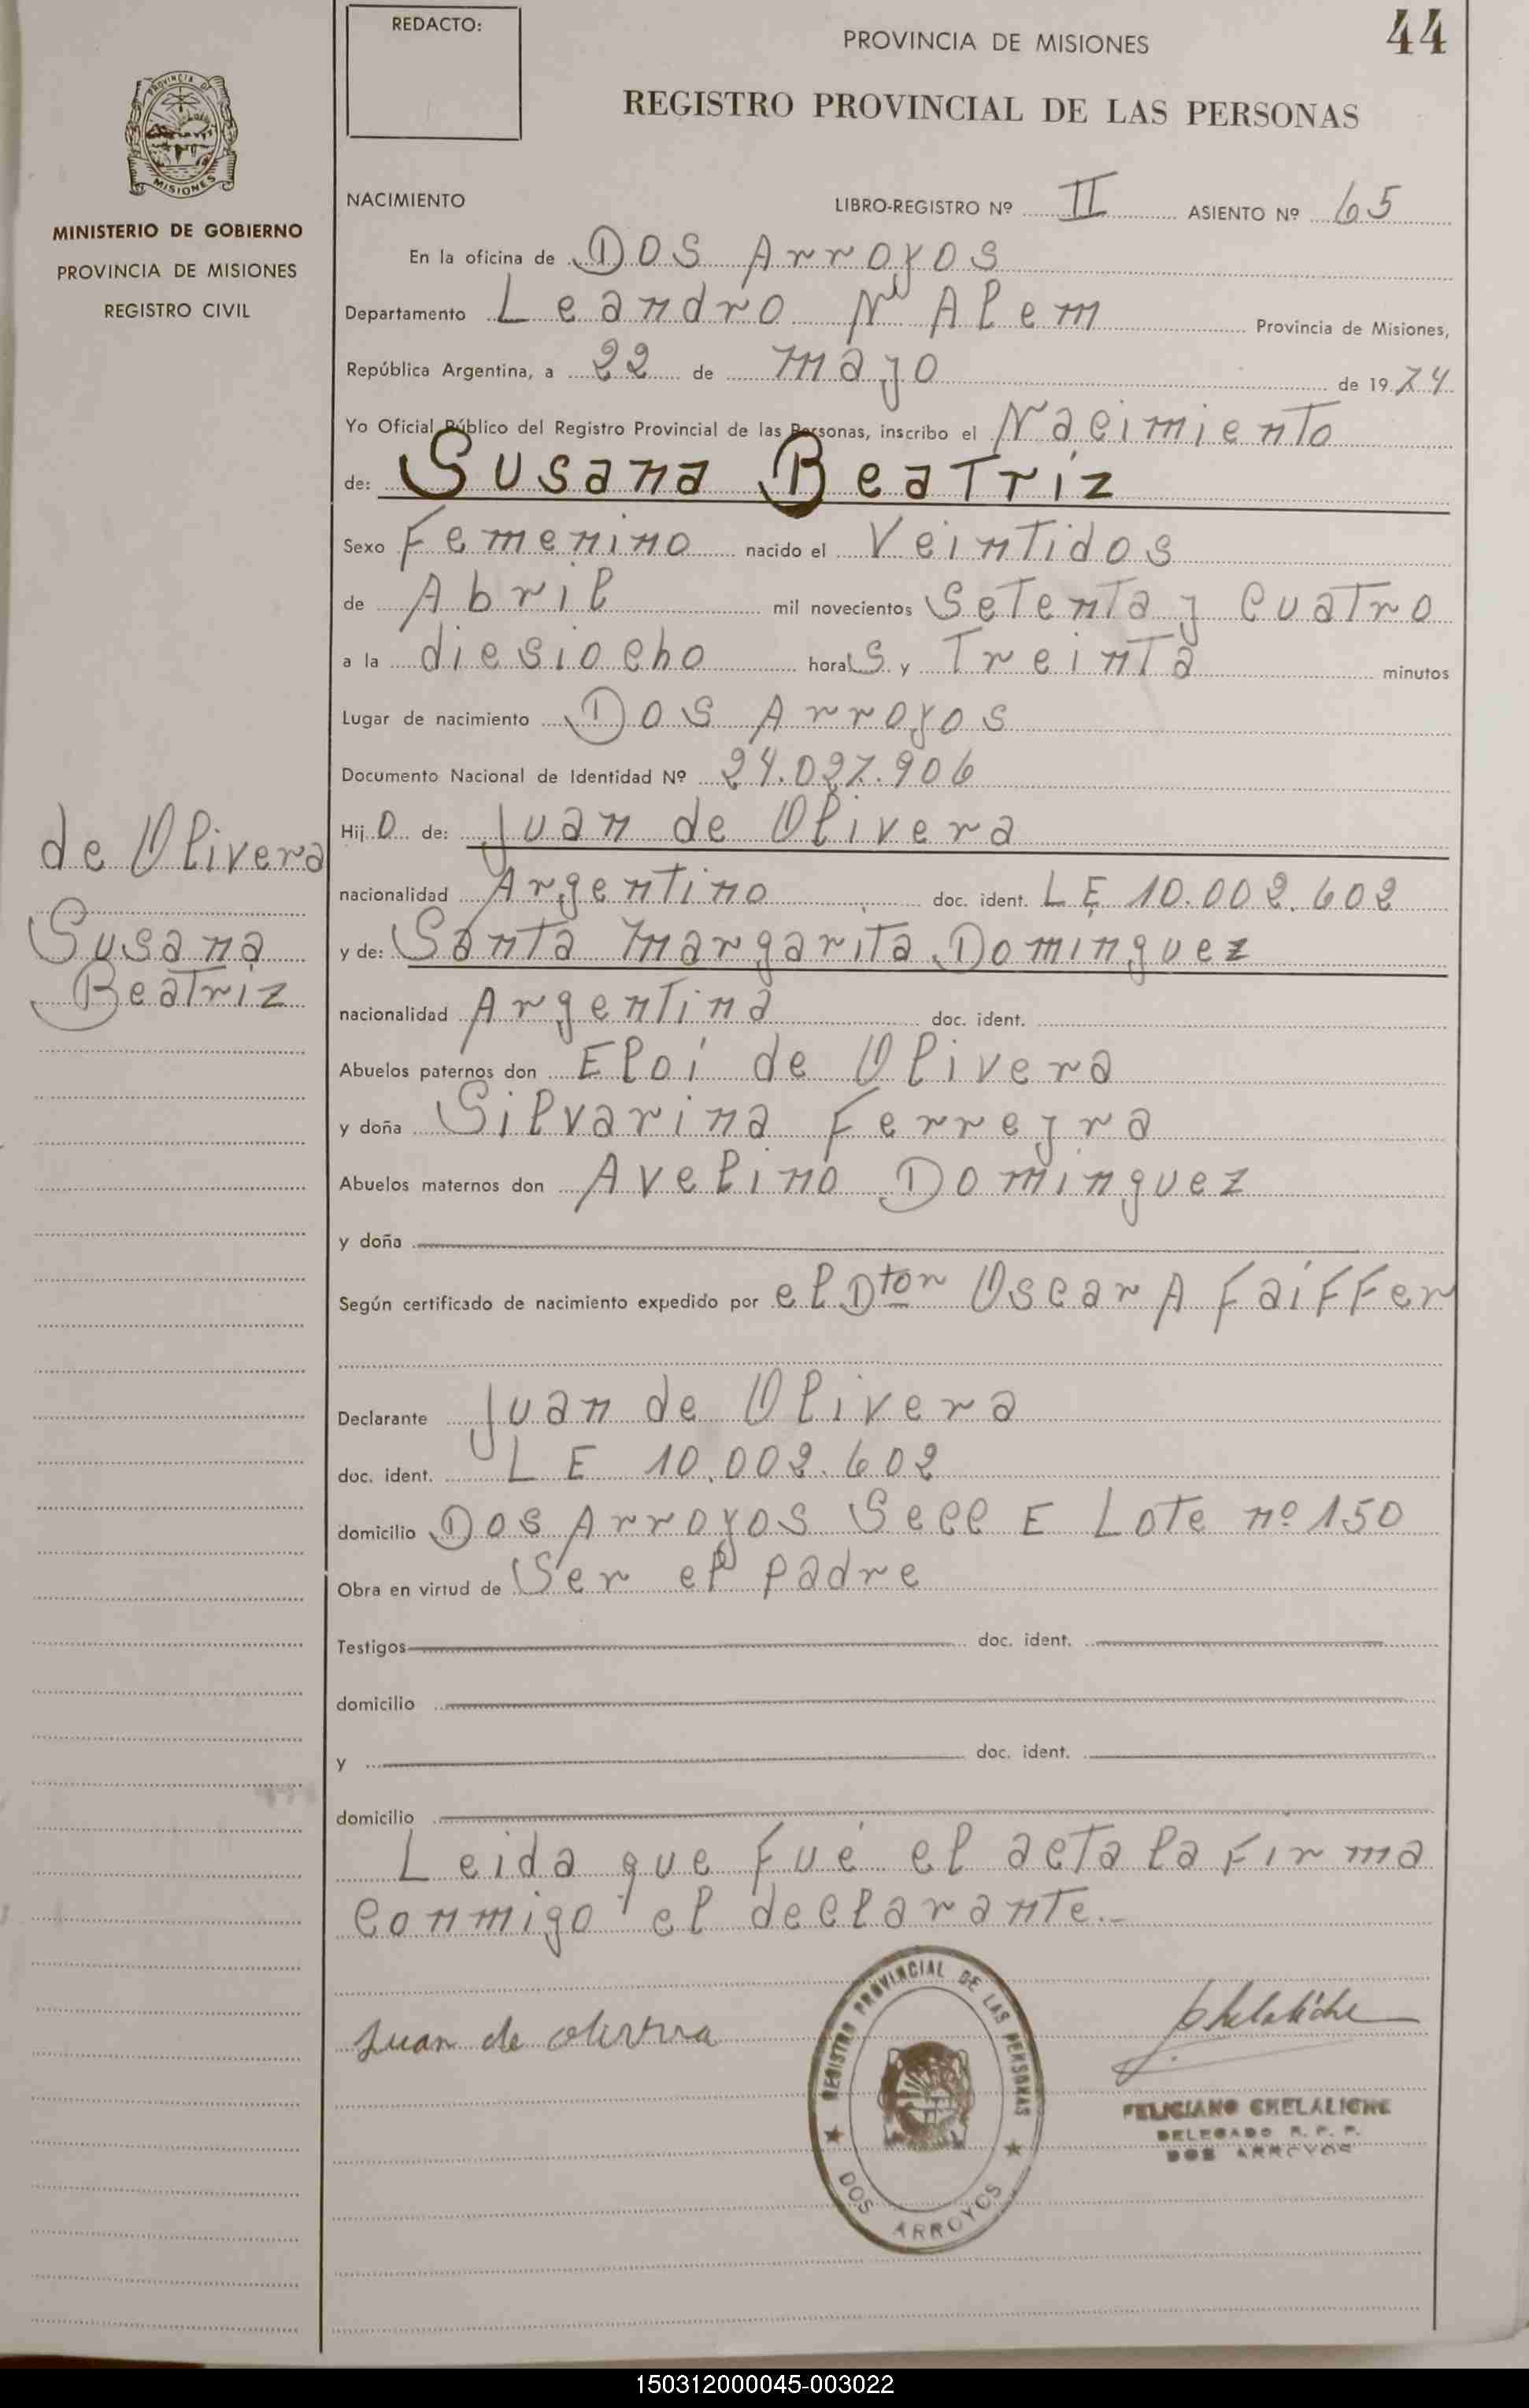 REDACTO:
PROVINCIA DE MISIONES
44
REGISTRO PROVINCIAL DE LAS PERSONAS
PROVINCIA DE MISIONES
MINISTERIO DE GOBIERNO
PROVINCIA DE MISIONES
REGISTRO CIVIL
NACIMIENTO
LIBRO-REGISTRO Nº II ASIENTO Nº 65
En la oficina de Dos Arroyos
Departamento Leandro N Alem Provincia de Misiones,
República Argentina, a 22 de mayo de 1974
Yo Oficial Público del Registro Provincial de las Personas, inscribo el Nacimiento
de: Susana Beatríz
Sexo Femenino nacido el Veintidos
de Abril mil novecientos Setenta y Cuatro
a la diesiocho horas y Treinta minutos
Lugar de nacimiento Dos Arroyos
Documento Nacional de Identidad Nº 24.027.906
Hijo de: Juan de Olivera
de Olivera
Susana
Beatriz
nacionalidad Argentino doc. ident. LE 10.002.602
y de: Santa Margarita Dominguez
nacionalidad Argentina doc. ident.
Abuelos paternos don Eloi de Olivera
y doña Silvarina Ferreyra
Abuelos maternos don Avelino Dominguez
y doña
Según certificado de nacimiento expedido por el Dtor Oscar A Faiffer
Declarante Juan de Olivera
doc. ident. LE 10.002.602
domicilio Dos Arroyos Secc E Lote nº 150
Obra en virtud de Ser el padre
Testigos doc. ident.
domicilio
y doc. ident.
domicilio
Leida que fué el acta la firma
conmigo el declarante.-
Juan de olivera
REGISTRO PROVINCIAL DE LAS PERSONAS
DOS ARROYOS
Chelaliche
FELICIANO CHELALICHE
DELEGADO R. P. P.
DOS ARROYOS
150312000045-003022